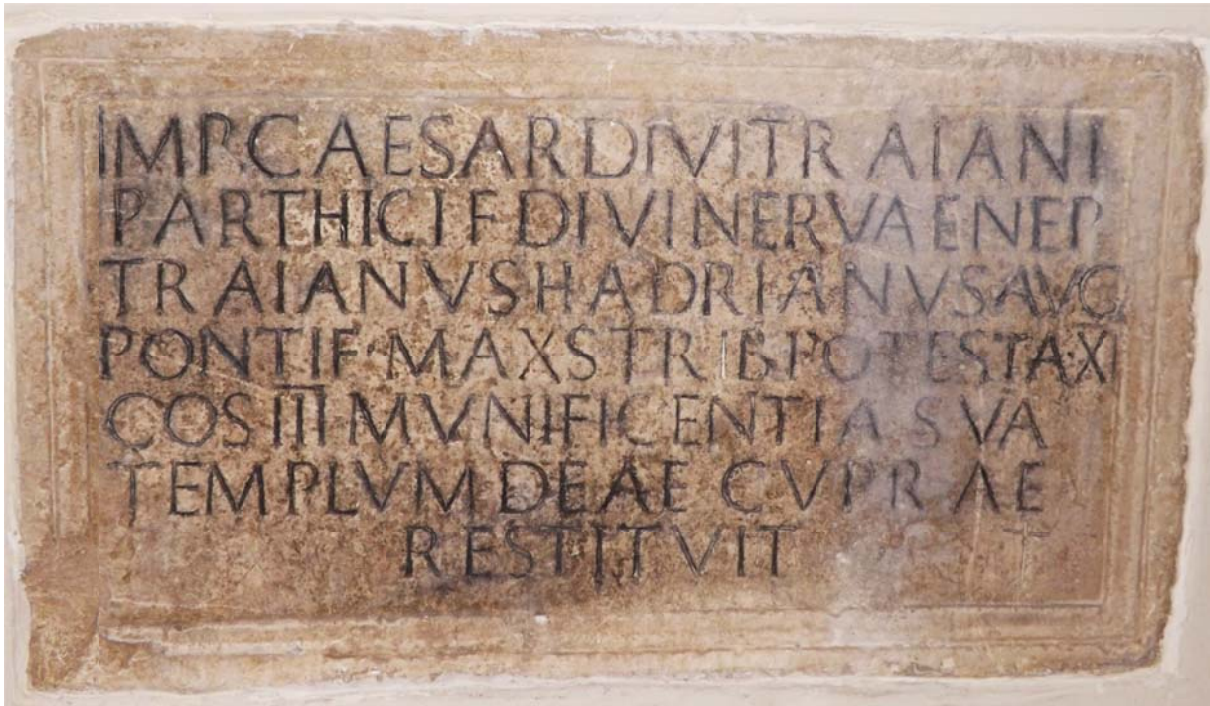 IMP. CAESAR DIVI TRAIANI
PARTHICI F DIVI NERVAE NEP
TRAIANVS HADRIANVS AVG
PONTIF MAXS TRIB POTESTA XI
COS III MVNIFICENTIA SVA
TEMPLVM DEAE CVPRAE
RESTITVIT